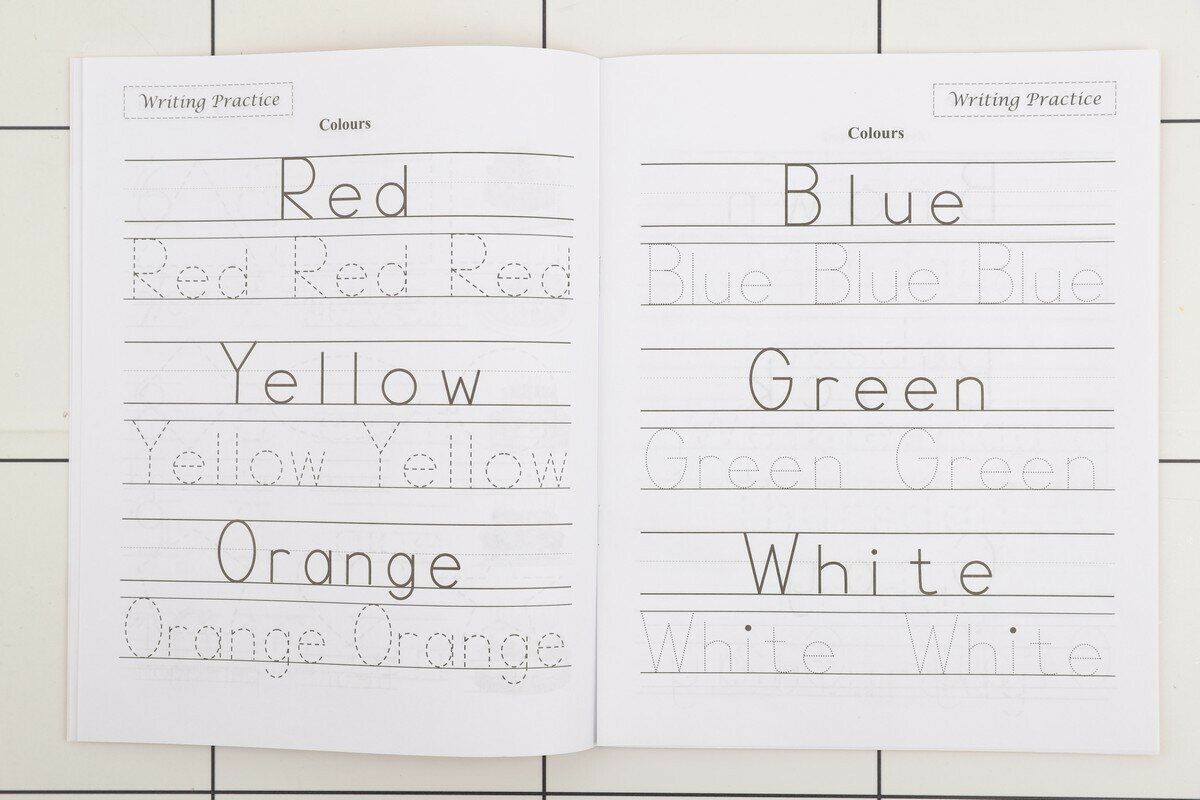 Writing Practice
Colours
Red
Red Red Red
Yellow
Yellow Yellow
Orange
Orange Orange
Writing Practice
Colours
Blue
Blue Blue Blue
Green
Green Green
White
White White